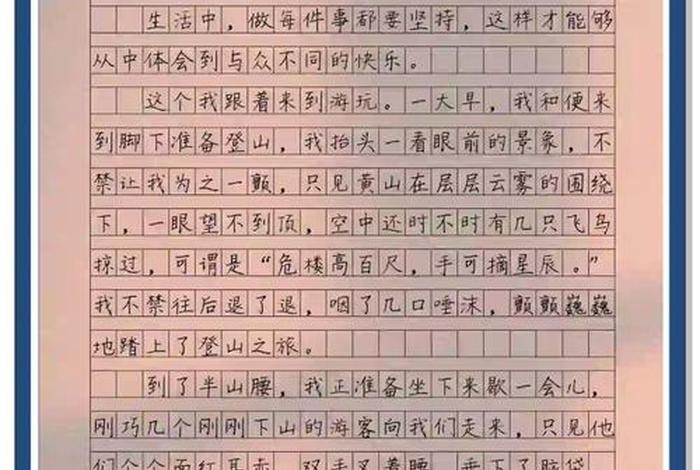 生活中，做每件事都要坚持，这样才能够
从中体会到与众不同的快乐。
这个我跟着来到游玩。一大早，我和便来
到脚下准备登山，我抬头一看眼前的景象，不
禁让我为之一颤，只见黄山在层层云雾的围绕
下，一眼望不到顶，空中还时不时有几只飞鸟
掠过，可谓是“危楼高百尺，手可摘星辰。”
我不禁往后退了退，咽了几口唾沫，颤颤巍巍
地踏上了登山之旅。
到了半山腰，我正准备坐下来歇一会儿，
刚巧几个刚刚下山的游客向我们走来，只见他
们个个面红耳赤，双手叉着腰，垂下了脑袋